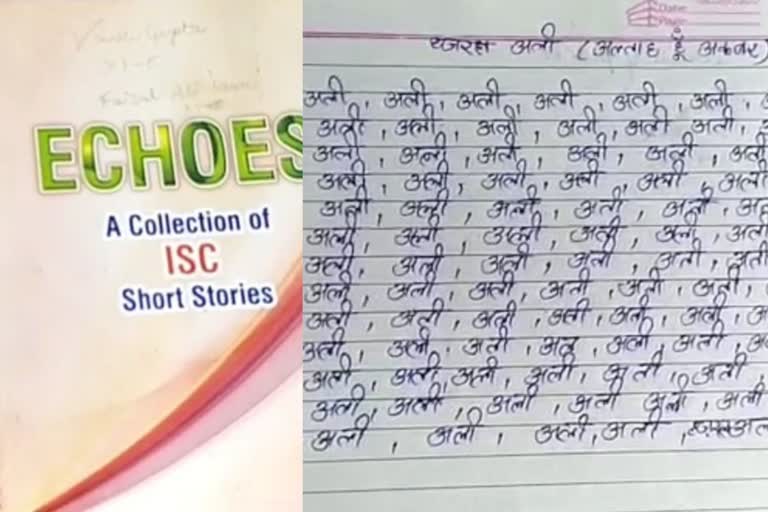 Gupta
ECHOES
A Collection of
ISC
Short Stories
Date
Page
हजरत अली (अल्लाह हूँ अकबर)
अली, अली, अली, अली, अली, अली,
अली, अली, अली, अली, अली, अली,
अली, अली, अली, अली, अली, अली
अली, अली, अली, अली, अली, अली
अली, अली, अली, अली, अली,
अली, अली, अली, अली, अली, अली
अली, अली, अली, अली, अली, अली
अली, अली, अली, अली, अली, अली,
अली, अली, अली, अली, अली, अली,
अली, अली, अली, अली, अली, अली,
अली, अली, अली, अली, अली, अली,
अली, अली, अली, अली, अली, अली
अली, अली, अली, अली,